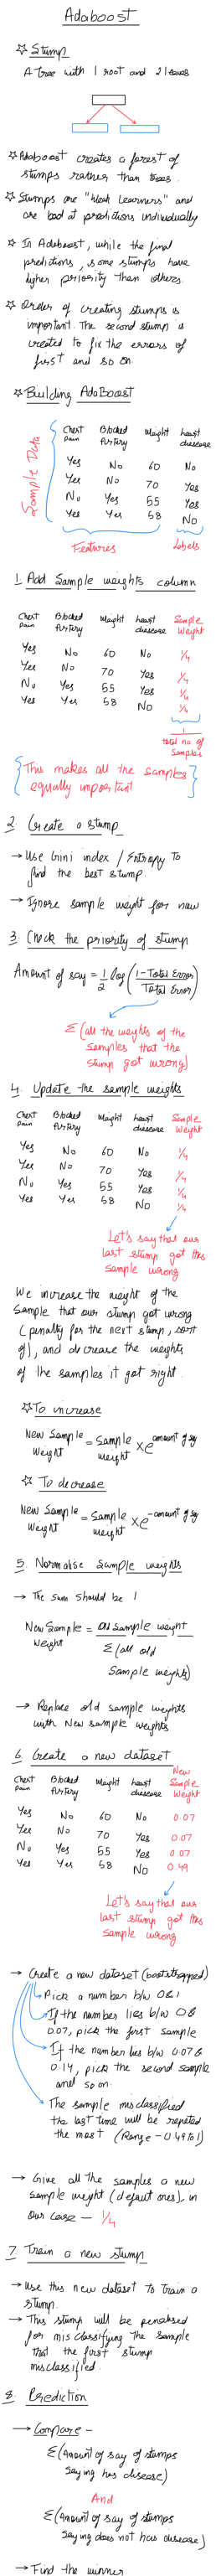 Adaboost
☆ Stump
A tree with 1 root and 2 leaves
☆ Adaboost creates a forest of
stumps rather than trees.
☆ Stumps are "Weak Learners" and
are bad at predictions individually
☆ In Adaboost, while the final
predictions, some stumps have
higher priority than others.
☆ Order of creating stumps is
important. The second stump is
created to fix the errors of
first and so on.
☆ Building AdaBoost
Sample Data
Chest pain Blocked Artery Weight heart disease
Yes No 60 No
Yes No 70 Yes
No Yes 55 Yes
Yes Yes 58 No
Features Labels
1. Add Sample weights column
Chest pain Blocked Artery Weight heart disease Sample Weight
Yes No 60 No 1/4
Yes No 70 Yes 1/4
No Yes 55 Yes 1/4
Yes Yes 58 No 1/4
1
total no. of
Samples
This makes all the samples
equally important
2. Create a stump
→ Use Gini index / Entropy to
find the best stump.
→ Ignore sample weight for now
3. Check the priority of stump
Amount of say = 1/2 log (1 - Total Error / Total Error)
Σ (all the weights of the
samples that the
stump got wrong)
4. Update the sample weights
Chest pain Blocked Artery Weight heart disease Sample Weight
Yes No 60 No 1/4
Yes No 70 Yes 1/4
No Yes 55 Yes 1/4
Yes Yes 58 No 1/4
Let's say that our
last stump got this
sample wrong
We increase the weight of the
sample that our stump got wrong
(penalty for the next stump, sort
of), and decrease the weights
of the samples it got right.
☆ To increase
New Sample Weight = Sample weight × e^amount of say
☆ To decrease
New Sample Weight = Sample weight × e^-amount of say
5. Normalise sample weights
→ The sum should be 1
New Sample Weight = Old sample weight
Σ (all old
Sample weights)
→ Replace old sample weights
with New sample weights
6. Create a new dataset
Chest pain Blocked Artery Weight heart disease New Sample Weight
Yes No 60 No 0.07
Yes No 70 Yes 0.07
No Yes 55 Yes 0.07
Yes Yes 58 No 0.49
Let's say that our
last stump got this
sample wrong
→ Create a new dataset (bootstrapped)
Pick a number b/w 0&1
If the number lies b/w 0&
0.07, pick the first sample
If the number lies b/w 0.07&
0.14, pick the second sample
and so on.
The sample misclassified
the last time will be repeted
the most (Range - 0.49 to 1)
→ Give all the samples a new
sample weight (default ones), in
our case - 1/4
7. Train a new stump
→ Use this new dataset to train a
stump.
→ This stump will be penalised
for misclassifying the sample
that the first stump
misclassified.
8. Prediction
→ Compare -
Σ (Amount of say of stumps
saying has disease)
And
Σ (Amount of say of stumps
saying does not has disease)
→ Find the winner